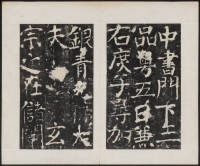 中書門下三
品男五日兼
右庶子尋加
銀青光祿大
夫 玄
宗之在儲闈